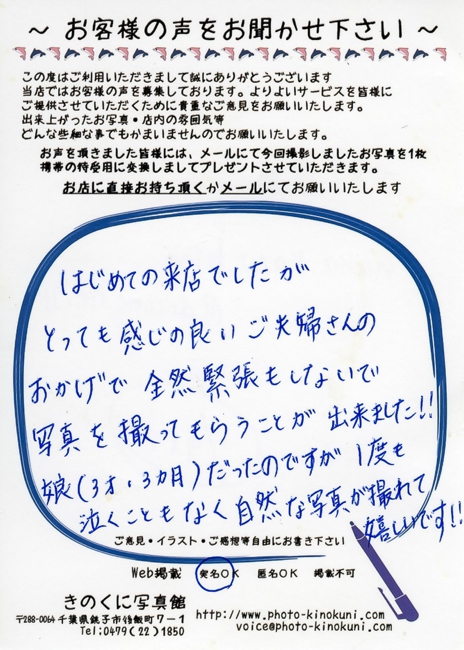 ～ お客様の声をお聞かせ下さい ～
この度はご利用いただきまして誠にありがとうございます
当店ではお客様の声を募集しております。よりよいサービスを皆様に
ご提供させていただくために貴重なご意見をお願いいたします。
出来上がったお写真・店内の雰囲気等
どんな些細な事でもかまいませんのでお願いいたします。
お声を頂きました皆様には、メールにて今回撮影しましたお写真を1枚
携帯の待受用に交換しましてプレゼントさせていただきます。
お店に直接お持ち頂くかメールにてお願いいたします
はじめての来店でしたが
とっても感じの良いご夫婦さんの
おかげで 全然緊張もしないで
写真を撮ってもらうことが 出来ました!!
娘(3才・3カ月)だったのですが 1度も
泣くこともなく自然な写真が撮れて
嬉しいです!!
ご意見・イラスト・ご感想等自由にお書き下さい
Web掲載 実名OK 匿名OK 掲載不可
きのくに写真館
〒288-0064 千葉県銚子市後飯町7-1
Tel:0479(22)1850
http://www.photo-kinokuni.com/
voice@photo-kinokuni.com